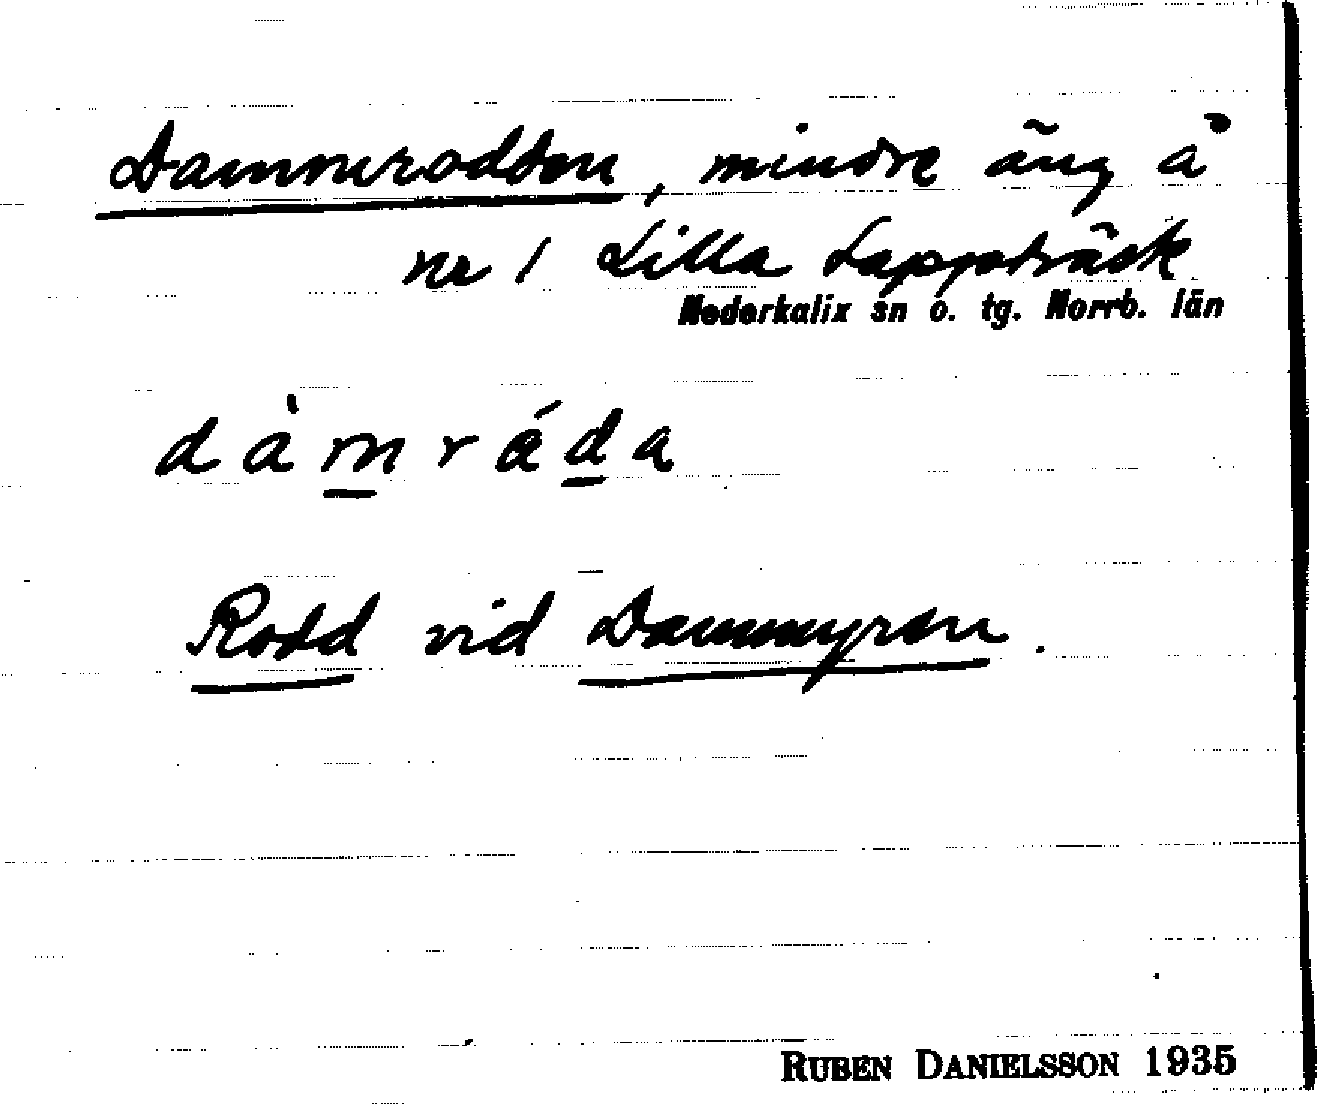 Dammrodden, mindre äng å
nr 1 Lilla Lappträsk
Nederkalix sn o. tg. Norrb. län
dàmráda
Rodd vid Dammyren.
RUBEN DANIELSSON 1935